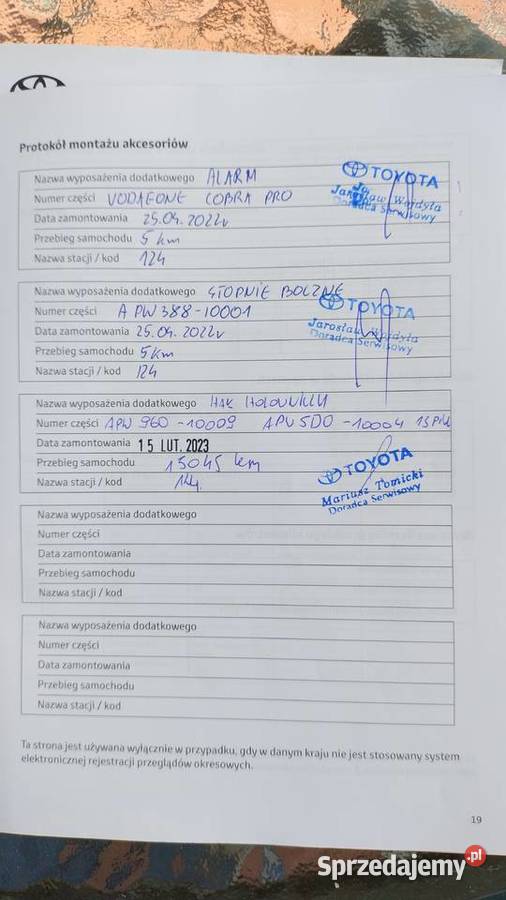 Protokół montażu akcesoriów
Nazwa wyposażenia dodatkowego ALARM
Numer części VODAFONE COBRA PRO
Data zamontowania 25.04.2022r
Przebieg samochodu 5 km
Nazwa stacji / kod 124
TOYOTA
Jarosław Wojdyła
Doradca Serwisowy
Nazwa wyposażenia dodatkowego STOPNIE BOCZNE
Numer części A PW388-10001
Data zamontowania 25.04.2022r
Przebieg samochodu 5km
Nazwa stacji / kod 124
TOYOTA
Jarosław Wojdyła
Doradca Serwisowy
Nazwa wyposażenia dodatkowego HAK HOLOWNICZY
Numer części APW 960 -10009 APV5D0 -10004 13PIN
Data zamontowania 15 LUT. 2023
Przebieg samochodu 15045 km
Nazwa stacji / kod 124.
TOYOTA
Mariusz Tomicki
Doradca Serwisowy
Nazwa wyposażenia dodatkowego
Numer części
Data zamontowania
Przebieg samochodu
Nazwa stacji / kod
Nazwa wyposażenia dodatkowego
Numer części
Data zamontowania
Przebieg samochodu
Nazwa stacji / kod
Ta strona jest używana wyłącznie w przypadku, gdy w danym kraju nie jest stosowany system
elektronicznej rejestracji przeglądów okresowych.
19
Sprzedajemy.pl